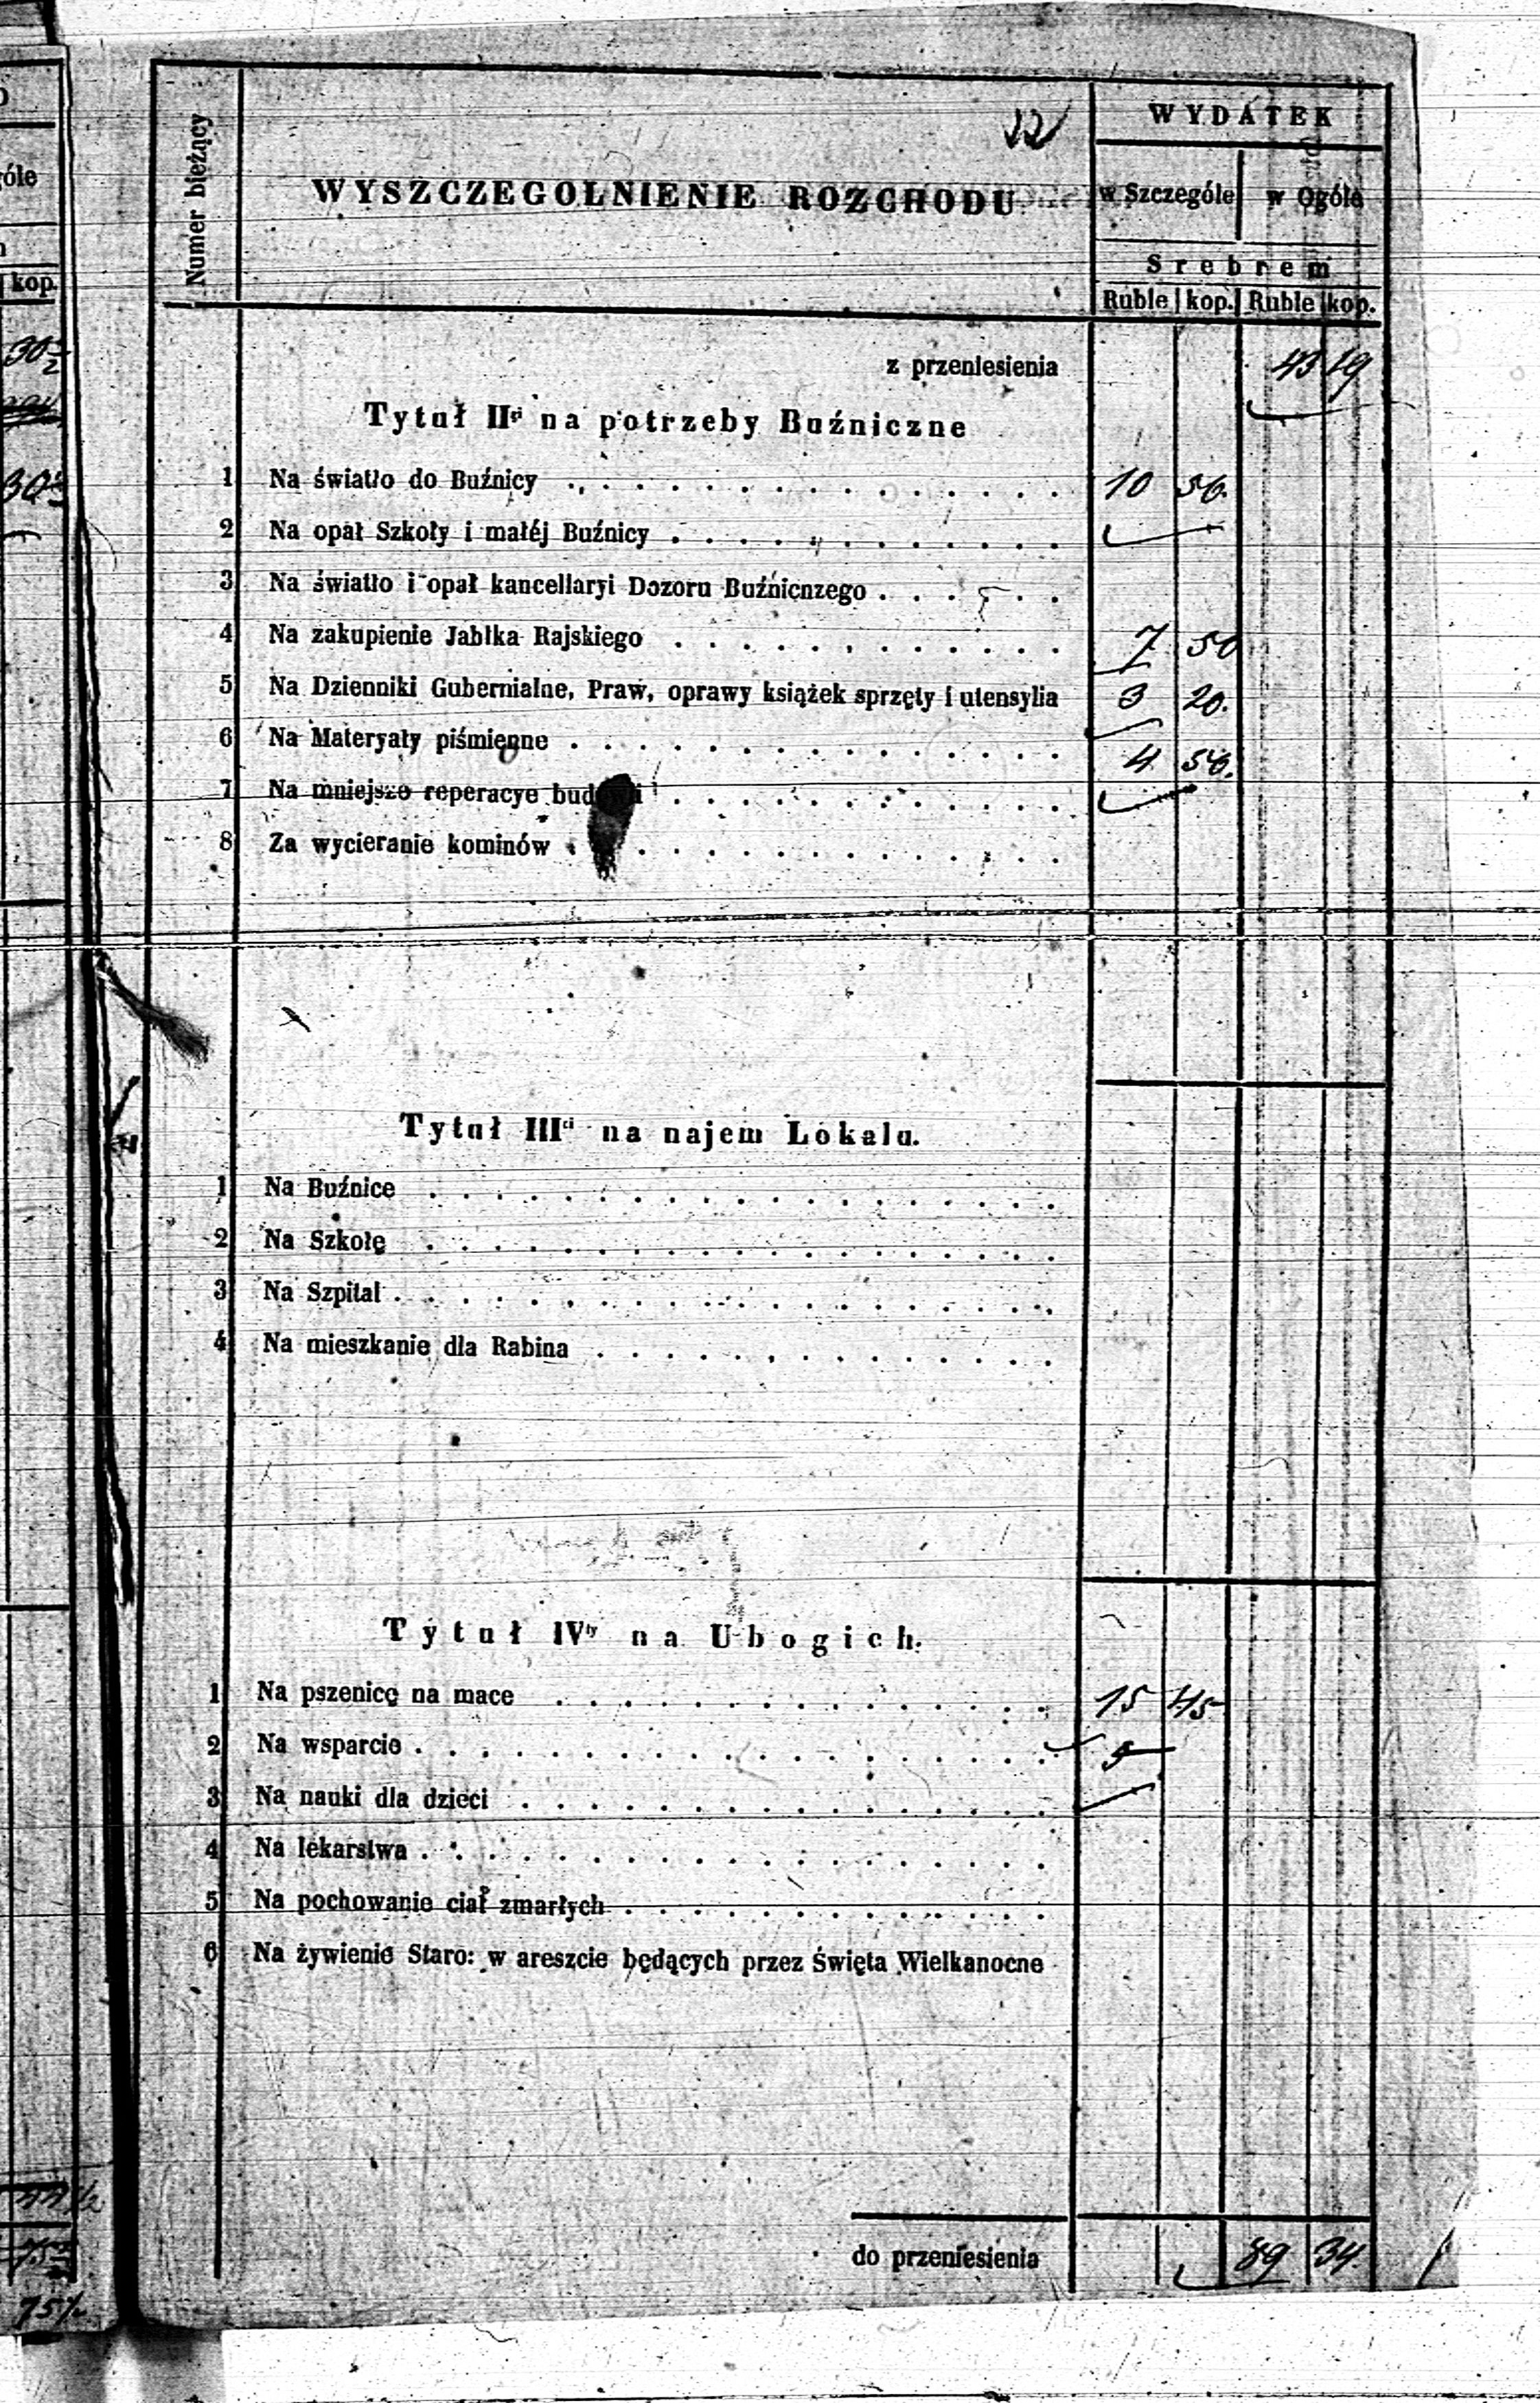 óle
kop.
30½
30½
Numer bieżący
WYSZCZEGOLNIENIE ROZCHODU
WYDATEK
w Szczególe w Ogóle
Srebrem
Ruble kop. Ruble kop.
z przeniesienia 43 19
Tytuł IIgi na potrzeby Buźniczne
1 Na światło do Buźnicy . . . . . . . . . . . . . . . 10 50.
2 Na opał Szkoły i małéj Buźnicy . . . . . . . . . . . .
3 Na światło i opał kancellaryi Dozoru Buźnicnzego . . . . . .
4 Na zakupienie Jabłka Rajskiego . . . . . . . . . . . . 7 50
5 Na Dzienniki Gubernialne, Praw, oprawy książek sprzęty i utensylia 3 20.
6 Na Materyały piśmienne . . . . . . . . . . . . . . . 4 50.
7 Na mniejsze reperacye budowli . . . . . . . . . . . .
8 Za wycieranie kominów . . . . . . . . . . . . . .
Tytuł IIIci na najem Lokalu.
1 Na Buźnice . . . . . . . . . . . . . . . . . . .
2 Na Szkołę . . . . . . . . . . . . . . . . . . .
3 Na Szpital . . . . . . . . . . . . . . . . . . . .
4 Na mieszkanie dla Rabina . . . . . . . . . . . . . .
Tytuł IVty na Ubogich.
1 Na pszenicę na mace . . . . . . . . . . . . . . . 15 45
2 Na wsparcie . . . . . . . . . . . . . . . . . . . 5 —
3 Na nauki dla dzieci . . . . . . . . . . . . . . . .
4 Na lekarstwa . . . . . . . . . . . . . . . . . . .
5 Na pochowanie ciał zmarłych . . . . . . . . . . . . .
6 Na żywienie Staro: w areszcie będących przez Święta Wielkanocne
do przeniesienia 89 34
75½